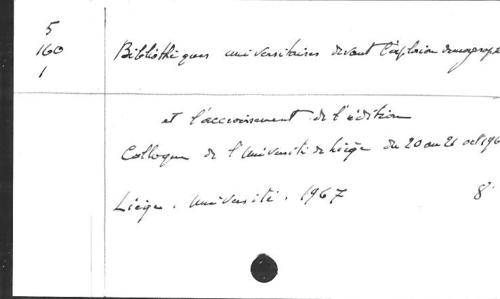 5
160
1
Bibliothèques universitaires devant l'explosion démograp
et l'accroissement de l'édition
Colloque de l'Université de Liège du 20 au 21 oct 196
Liège, Université, 1967 8°